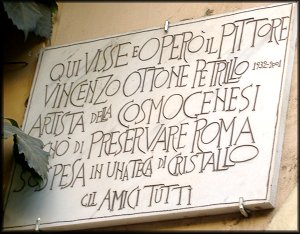 QUI VISSE E OPERÒ IL PITTORE
VINCENZO OTTONE PETRILLO
ARTISTA DELLA COSMOCENESI
CHÒ DI PRESERVARE ROMA
SOSPESA IN UNA TECA DI CRISTALLO
GLI AMICI TUTTI